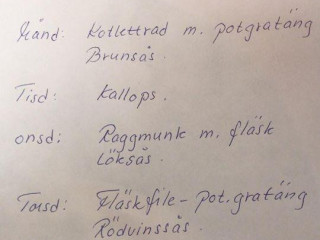 Månd: Kotlettrad m. potgratäng
Brunsås.
Tisd: Kallops.
onsd: Raggmunk m. fläsk
Löksås.
Torsd: Fläskfile - pot.gratäng
Rödvinssås.